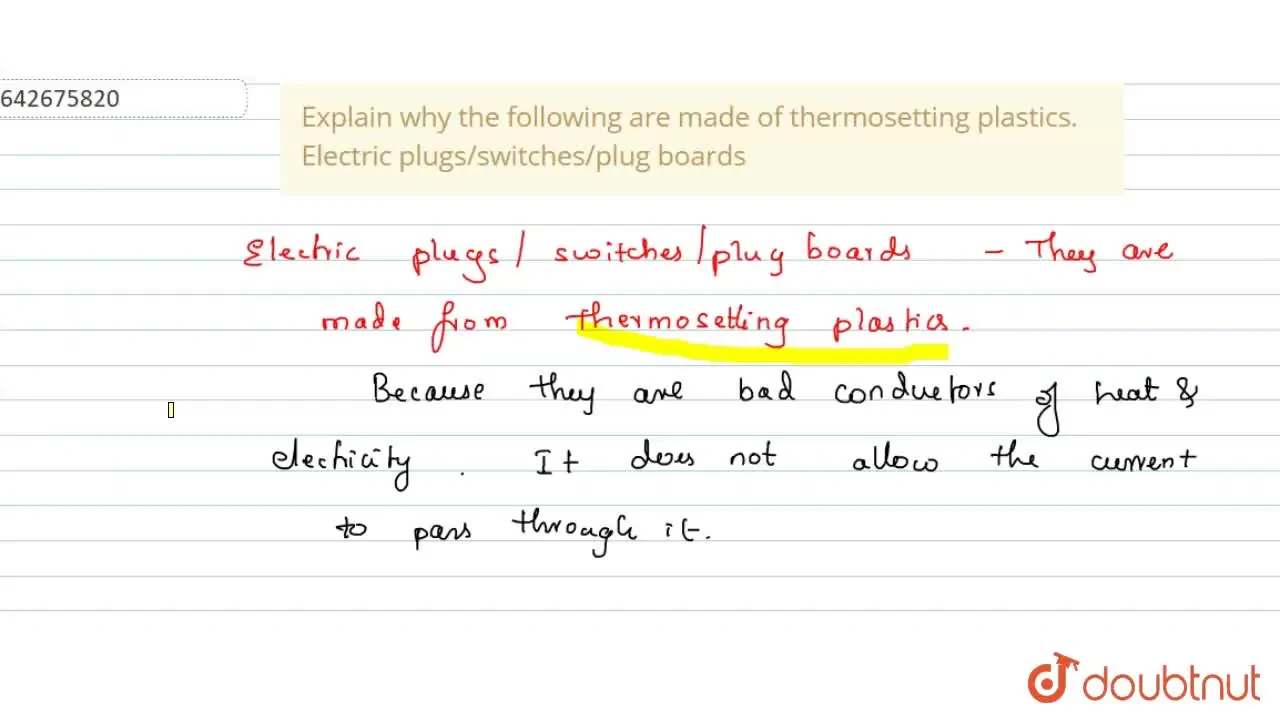 642675820
Explain why the following are made of thermosetting plastics.
Electric plugs/switches/plug boards
Electric plugs/ switches/plug boards - They are
made from thermosetting plastics.
Because they are bad conductors of heat &
electricity. It does not allow the current
to pass through it.
doubtnut